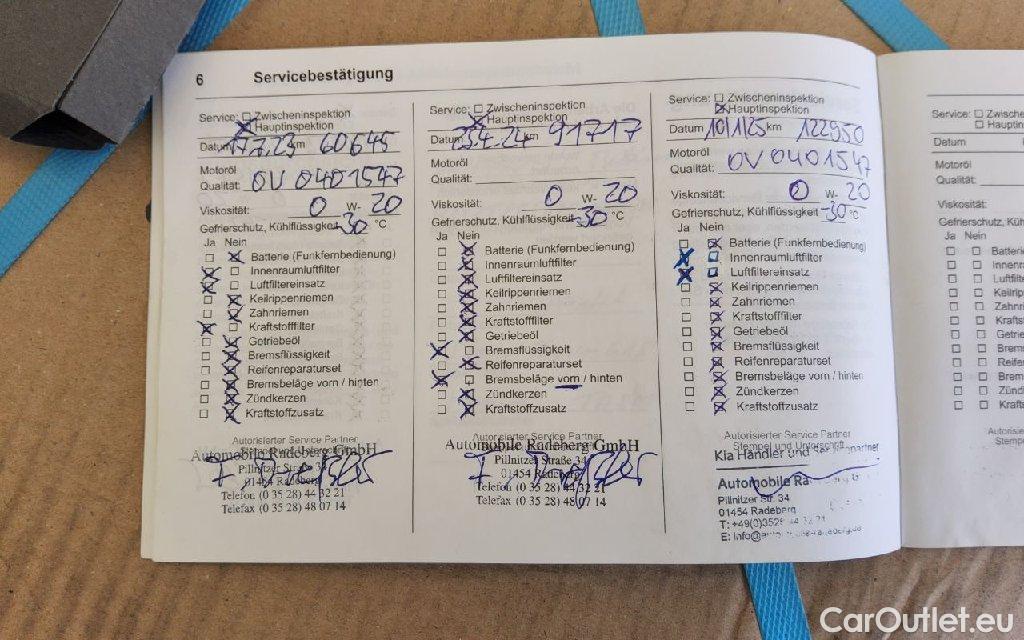 6 Servicebestätigung
Service: Zwischeninspektion
Hauptinspektion
Datum 17.7.23 km 60645
Motoröl
Qualität: OV 0401547
Viskosität: 0 W- 20
Gefrierschutz, Kühlflüssigkeit -30 °C
Ja Nein
Batterie (Funkfernbedienung)
Innenraumluftfilter
Luftfiltereinsatz
Keilrippenriemen
Zahnriemen
Kraftstofffilter
Getriebeöl
Bremsflüssigkeit
Reifenreparaturset
Bremsbeläge vorn / hinten
Zündkerzen
Kraftstoffzusatz
Autorisierter Service Partner
Automobile Radeberg GmbH
Pillnitzer Straße 34
01454 Radeberg
Telefon (0 35 28) 44 32 21
Telefax (0 35 28) 48 07 14
Service: Zwischeninspektion
Hauptinspektion
Datum 23.4.24 km 91717
Motoröl
Qualität:
Viskosität: 0 W- 20
Gefrierschutz, Kühlflüssigkeit -30 °C
Ja Nein
Batterie (Funkfernbedienung)
Innenraumluftfilter
Luftfiltereinsatz
Keilrippenriemen
Zahnriemen
Kraftstofffilter
Getriebeöl
Bremsflüssigkeit
Reifenreparaturset
Bremsbeläge vorn / hinten
Zündkerzen
Kraftstoffzusatz
Autorisierter Service Partner
Automobile Radeberg GmbH
Pillnitzer Straße 34
01454 Radeberg
Telefon (0 35 28) 44 32 21
Telefax (0 35 28) 48 07 14
Service: Zwischeninspektion
Hauptinspektion
Datum 10/1/25 km 122950
Motoröl
Qualität: OV 0401547
Viskosität: 0 W- 20
Gefrierschutz, Kühlflüssigkeit -30 °C
Ja Nein
Batterie (Funkfernbedienung)
Innenraumluftfilter
Luftfiltereinsatz
Keilrippenriemen
Zahnriemen
Kraftstofffilter
Getriebeöl
Bremsflüssigkeit
Reifenreparaturset
Bremsbeläge vorn / hinten
Zündkerzen
Kraftstoffzusatz
Autorisierter Service Partner
Stempel und Unterschrift
Kia Händler und Servicepartner
Automobile Ra
Pillnitzer Str. 34
01454 Radeberg
T: +49(0)3528 44 32 21
Service: Zwischen
Hauptin
Datum
Motoröl
Qualität:
Viskosität:
Gefrierschutz, Kü
Ja Nein
Batterie
Innenra
Luftfilte
Keilrip
Zahnri
Krafts
Getrie
Brems
Reife
Brem
Zünd
Kraft
Autoris
Stemp
CarOutlet.eu